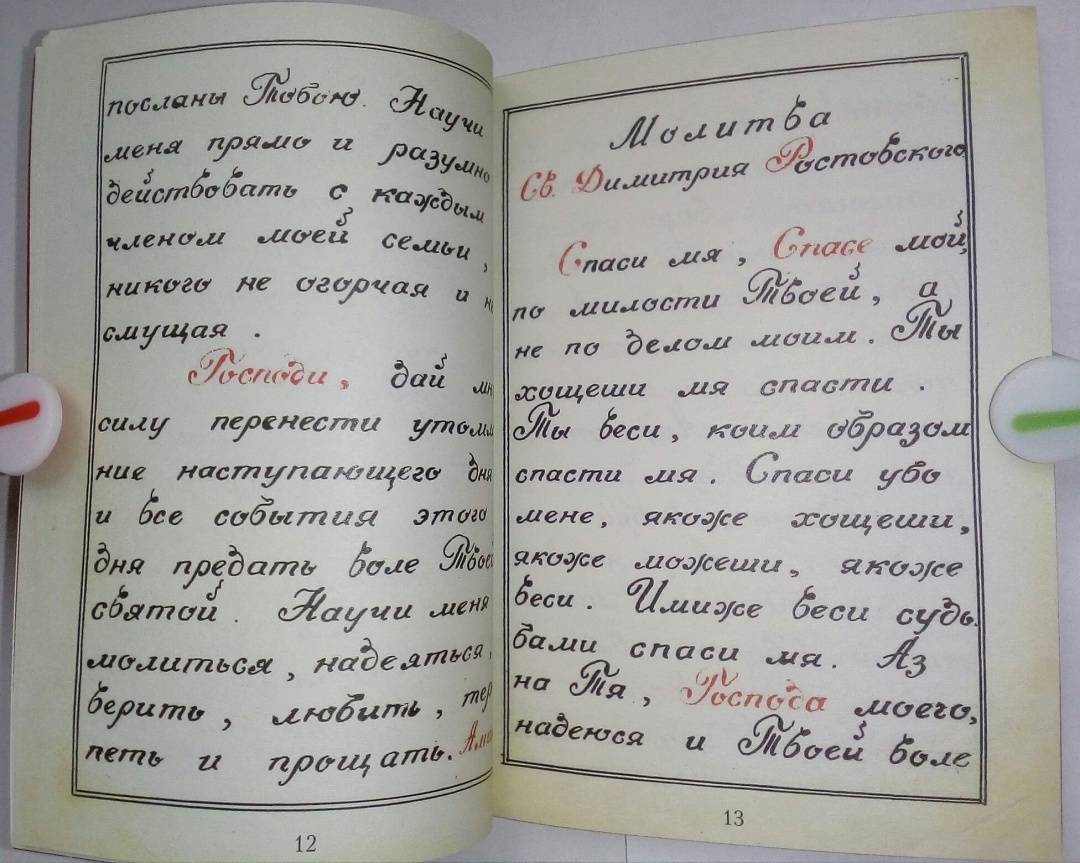 посланы Тобою. Научи
меня прямо и разумно
действовать с каждым
членом моей семьи,
никого не огорчая и
смущая.
Господи, дай
силу перенести
ние наступающего дня
и все события этого
дня предать воле Твоей
святой. Научи меня
молиться, надеяться,
верить, любить, тер
петь и прощать.
12
Молитва
Св. Димитрия Ростовского
Спаси мя, Спасе мой,
по милости Твоей, а
не по делом моим. Ты
хощеши мя спасти.
Ты веси, коим образом
спасти мя. Спаси убо
мене, якоже хощеши,
якоже можеши, якоже
веси. Имиже веси судь-
бами спаси мя. Аз
на Тя, Господа моего,
надеюся и Твоей воле
13